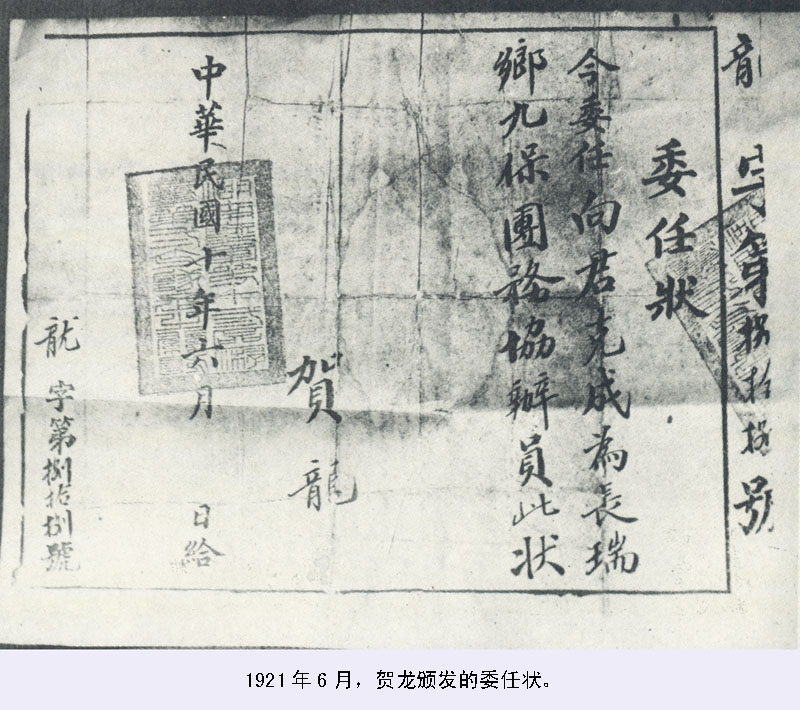 龍字第捌拾捌號
委任狀
今委任向君克成為長瑞
鄉九保團務協辦員此狀
賀龍
中華民國十年六月 日給
龍字第捌拾捌號
1921年6月，贺龙颁发的委任状。